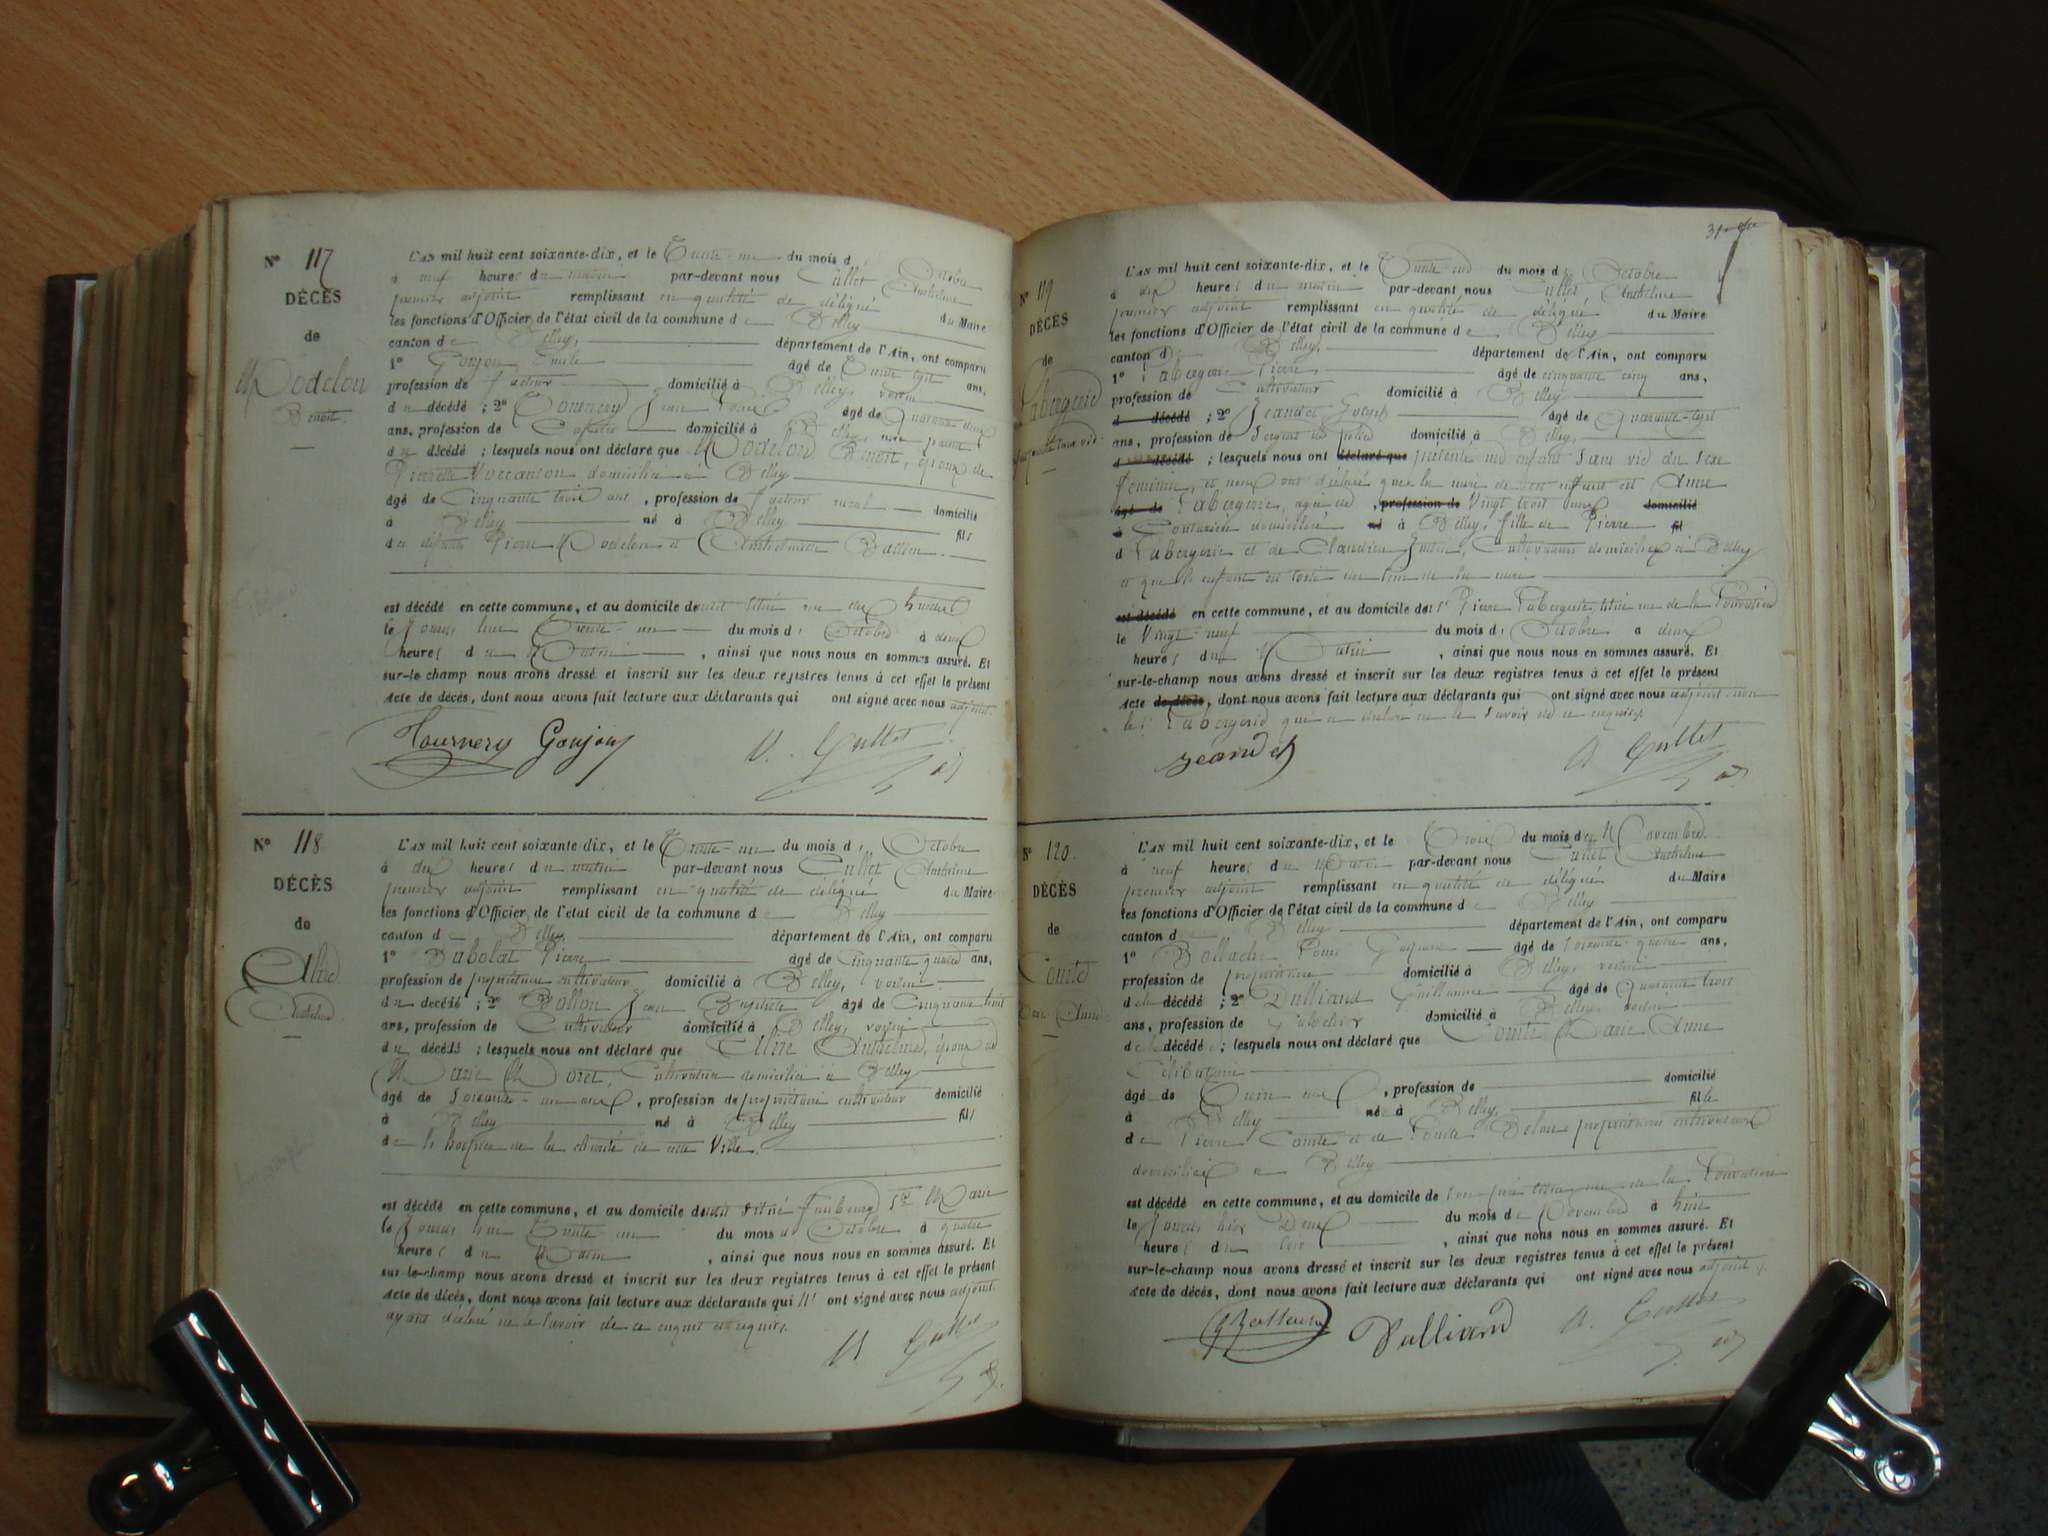 N° 117
DÉCÈS
de
Modelon
Benoit
L'AN mil huit cent soixante-dix, et le Trente un du mois d' Octobre
à neuf heures du matin par-devant nous Cullet Anthelme
premier adjoint remplissant en qualité de délégué du Maire
les fonctions d'Officier de l'état civil de la commune de Belley
canton de Belley, département de l'Ain, ont comparu
1° Goujon Emile âgé de Trente sept ans,
profession de facteur domicilié à Belley, voisin
du décédé ; 2° Tournery Jean âgé de Quarante deux
ans, profession de domicilié à Belley, non parent
du décédé ; lesquels nous ont déclaré que Modelon Benoit, époux de
Pierrette Voccanson domiciliée à Belley
âgé de Cinquante trois ans, profession de facteur rural domicilié
à Belley né à Belley fils
de défunts Pierre Modelon et Anthelmette Ballon
est décédé en cette commune, et au domicile
le Jourd'hui Trente un du mois d' Octobre à deux
heures du Matin, ainsi que nous nous en sommes assuré. Et
sur-le champ nous avons dressé et inscrit sur les deux registres tenus à cet effet le présent
Acte de décès, dont nous avons fait lecture aux déclarants qui ont signé avec nous adjoint.
Tournery Goujon A. Cullet
N° 118
DÉCÈS
de
Anthelme
L'AN mil huit cent soixante dix, et le Trente-un du mois d' Octobre
à dix heures du matin par-devant nous Cullet Anthelme
premier adjoint remplissant en qualité de délégué du Maire
les fonctions d'Officier de l'état civil de la commune de Belley
canton de Belley département de l'Ain, ont comparu
1° Pierre âgé de Cinquante quatre ans,
profession de propriétaire cultivateur domicilié à Belley, voisin
du décédé ; 2° Ballon Jean Baptiste âgé de Cinquante trois
ans, profession de Cultivateur domicilié à Belley, voisin
du décédé ; lesquels nous ont déclaré que Anthelme, époux de
Marie Moret, Cultivatrice domiciliée à Belley
âgé de Soixante-un ans, profession de propriétaire cultivateur domicilié
à Belley né à Belley fils
de l'hospice de la charité de cette Ville.
est décédé en cette commune, et au domicile situé Faubourg St Marie
le Jourd'hui Trente un du mois d' Octobre à quatre
heures du Matin, ainsi que nous nous en sommes assuré. Et
sur-le-champ nous avons dressé et inscrit sur les deux registres tenus à cet effet le présent
Acte de décès, dont nous avons fait lecture aux déclarants qui n' ont signé avec nous adjoint
ayant déclaré ne le savoir de ce enquis et requis.
A. Cullet
N° 119
DÉCÈS
de
Labergerie
L'AN mil huit cent soixante-dix, et le Trente un du mois d' Octobre
à dix heures du matin par-devant nous Cullet Anthelme
premier adjoint remplissant en qualité de délégué du Maire
les fonctions d'Officier de l'état civil de la commune de Belley
canton de Belley, département de l'Ain, ont comparu
1° Labergerie Pierre, âgé de cinquante cinq ans,
profession de Cultivateur domicilié à Belley
du décédé ; 2° Jeandet Joseph âgé de Quarante-sept
ans, profession de Sergent de police domicilié à Belley,
du décédé ; lesquels nous ont déclaré que présenté un enfant sans vie du sexe
féminin, et nous ont déclaré que la mère de cet enfant est Anne
âgé de Labergerie, âgée de, profession de Vingt trois ans domicilié
à Couturière domiciliée né à Belley, fille de Pierre fil
d Labergerie et de Claudine, Cultivateurs domiciliés à Belley
et que l'enfant est sorti du sein de la mère
est décédé en cette commune, et au domicile du Sr Pierre Labergerie, situé rue de la
le Vingt neuf du mois d' Octobre à deux
heures du Matin, ainsi que nous nous en sommes assuré. Et
sur-le-champ nous avons dressé et inscrit sur les deux registres tenus à cet effet le présent
Acte de décès, dont nous avons fait lecture aux déclarants qui ont signé avec nous adjoint, non
le Sr Labergerie qui a déclaré ne le savoir de ce enquis.
Jeandet A Cullet
N° 120.
DÉCÈS
de
Comte
L'AN mil huit cent soixante-dix, et le Trois du mois de Novembre
à neuf heures du Matin par-devant nous Cullet Anthelme
premier adjoint remplissant en qualité de délégué du Maire
les fonctions d'Officier de l'état civil de la commune de Belley
canton de Belley département de l'Ain, ont comparu
1° âgé de Soixante-quatre ans,
profession de propriétaire domicilié à Belley, voisin
de la décédé ; 2° Dulliand Guillaume âgé de Quarante trois
ans, profession de domicilié à Belley, voisin
de la décédé ; lesquels nous ont déclaré que Comte Marie Anne
Célibataire
âgé de ans, profession de domicilié
à Belley né à Belley, fille
de Pierre Comte et de propriétaires cultivateurs
domiciliés à Belley
est décédé en cette commune, et au domicile de son père situé rue de la
le Jour d'hier Deux du mois de Novembre à huit
heures du soir, ainsi que nous nous en sommes assuré. Et
sur-le-champ nous avons dressé et inscrit sur les deux registres tenus à cet effet le présent
Acte de décès, dont nous avons fait lecture aux déclarants qui ont signé avec nous adjoint
Dulliand A. Cullet